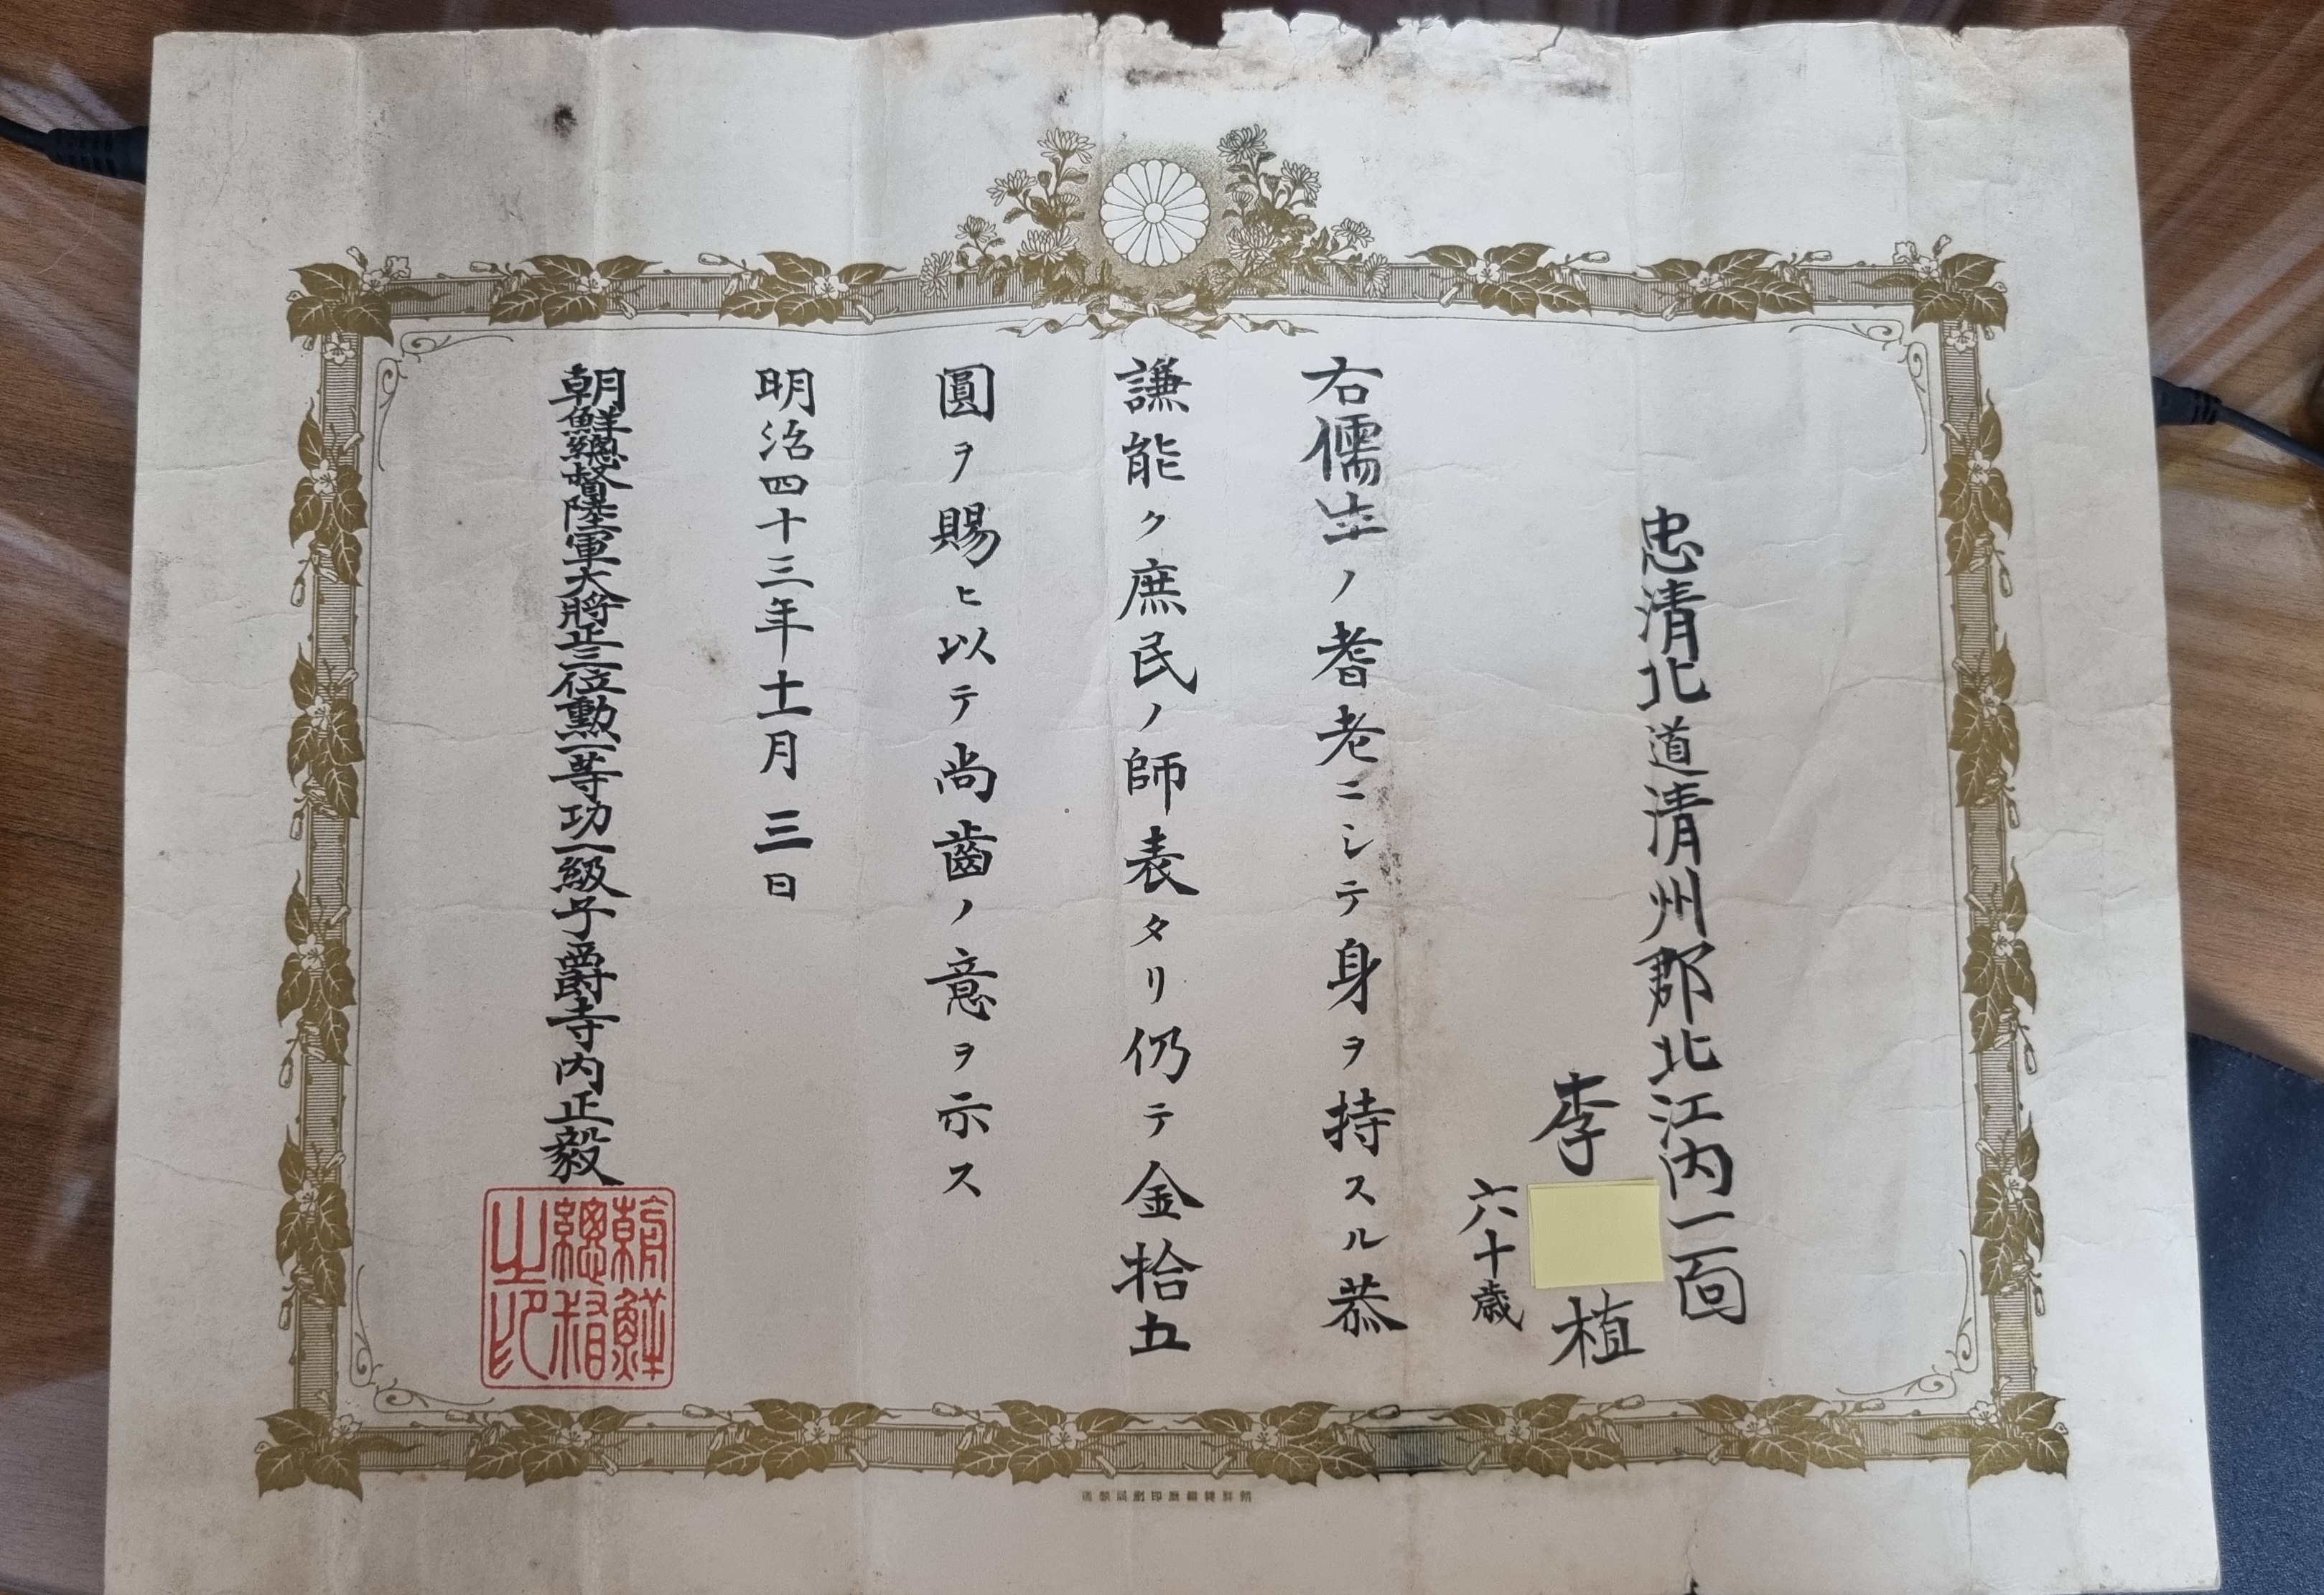 忠清北道清州郡北江内一面
李
植
六十歳
右儒生ノ耆老ニシテ身ヲ持スル恭
謙能ク庶民ノ師表タリ仍テ金拾五
圓ヲ賜ヒ以テ尚齒ノ意ヲ示ス
明治四十三年十一月三日
朝鮮總督陸軍大將正三位勳一等功一級子爵寺内正毅
朝鮮
總督
之印
朝鮮總督府印刷局製造